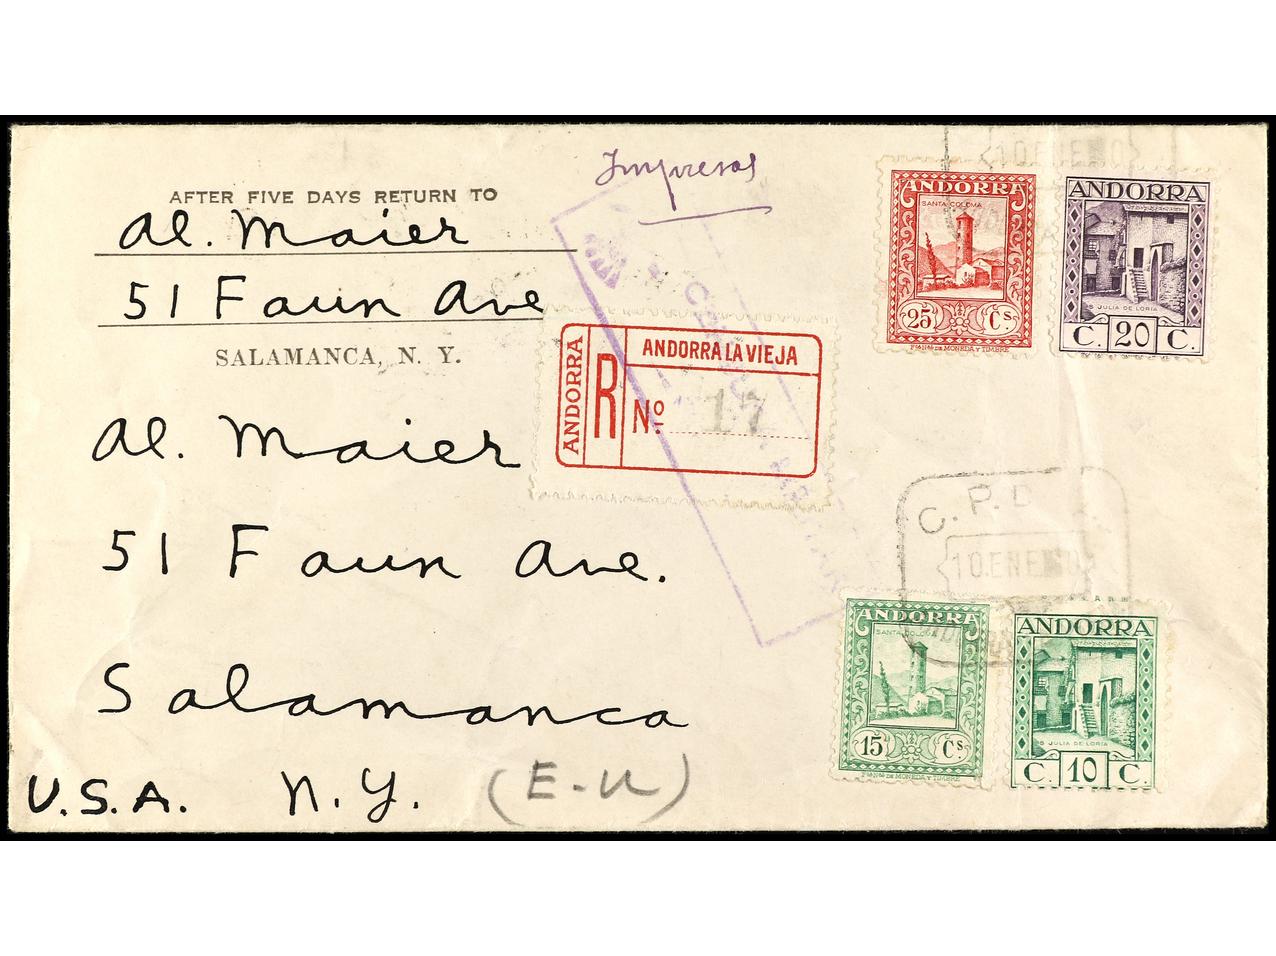 Impresos
AFTER FIVE DAYS RETURN TO
Al. Maier
51 Faun Ave
SALAMANCA, N. Y.
ANDORRA
R
ANDORRA LA VIEJA
Nº 17
Al. Maier
51 Faun Ave.
Salamanca
U.S.A. N.Y. (E.U)
10 ENE
ANDORRA
SANTA COLOMA
25 Cs.
Fca Nal DE MONEDA Y TIMBRE
ANDORRA
S JULIA DE LORIA
C. 20 C.
C.P.D
10.ENE
ANDORRA
SANTA COLOMA
15 Cs.
Fca Nal DE MONEDA Y TIMBRE
ANDORRA
S JULIA DE LORIA
C. 10 C.